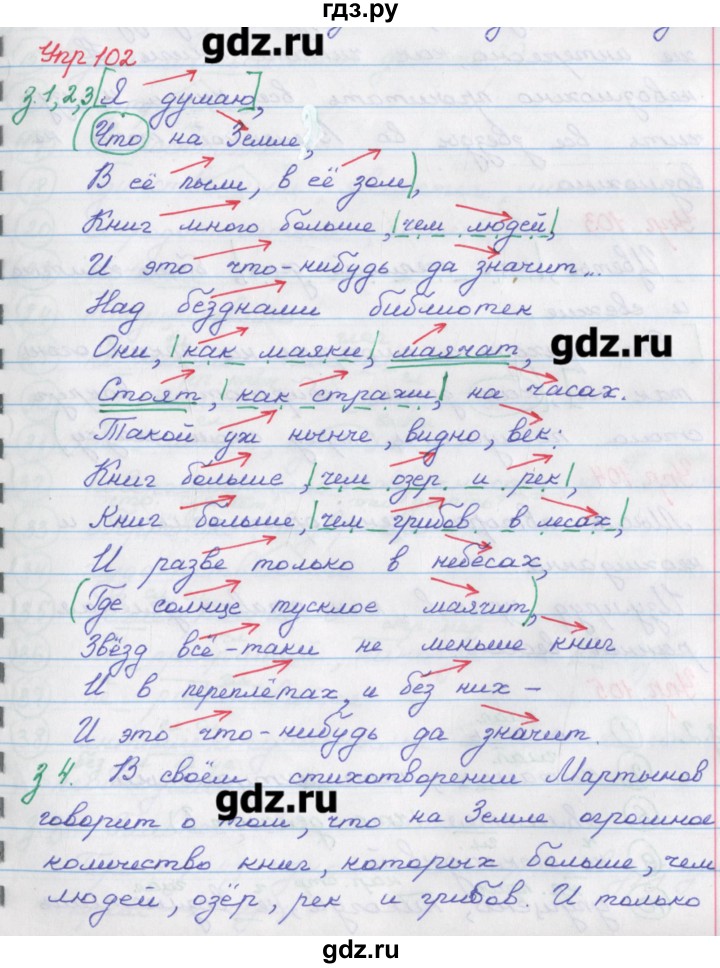 гдз.ру
gdz.ru
Упр 102
з.1,2,3 [Я думаю],
(Что на Земле,
В её пыли, в её золе),
Книг много больше, |чем людей,|
И это что-нибудь да значит...
Над безднами библиотек
Они, |как маяки,| маячат,
gdz.ru
Стоят, |как стражи,| на часах.
Такой уж нынче, видно, век:
Книг больше, |чем озёр и рек|,
Книг больше, |чем грибов в лесах,|
И разве только в небесах,
(Где солнце тусклое маячит),
Звёзд всё-таки не меньше книг
И в переплётах, и без них –
И это что-нибудь да значит.
з 4. В своём стихотворении Мартынов
gdz.ru
говорит о том, что на Земле огромное
количество книг, которых больше, чем
людей, озёр, рек и грибов. И только
gdz.ru